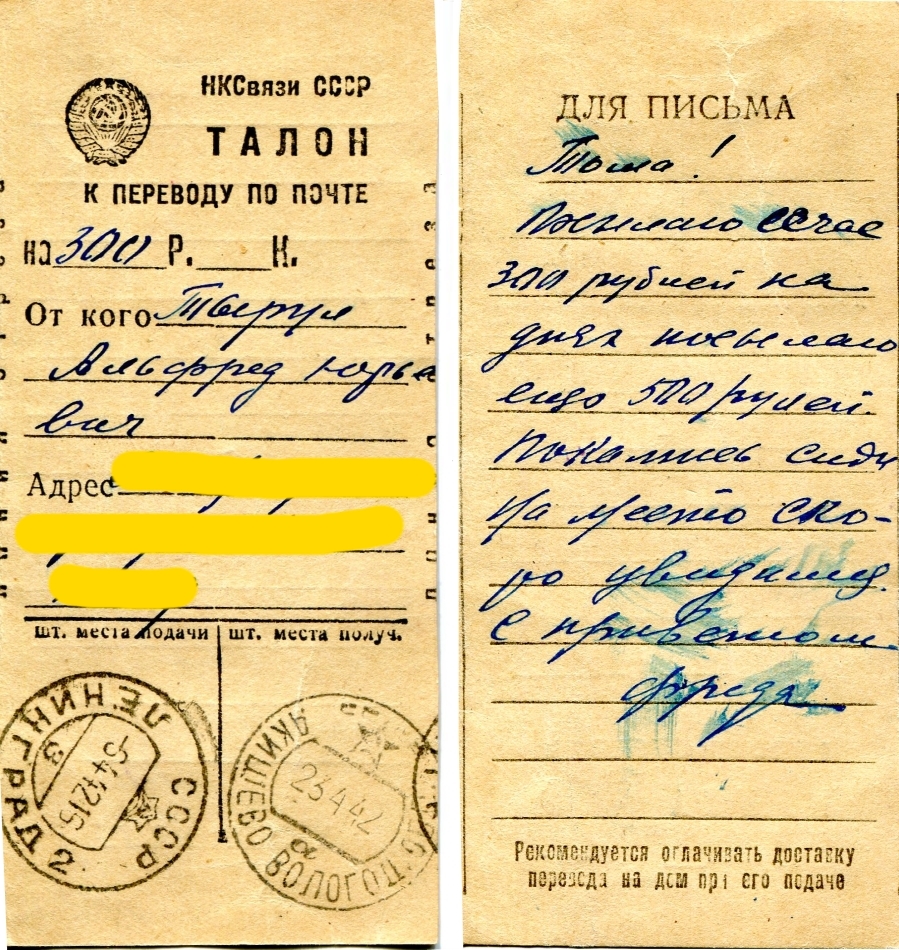 НКСвязи СССР
ТАЛОН
К ПЕРЕВОДУ ПО ПОЧТЕ
на 300 Р. К.
От кого
Альфред Юрье
вич
Адрес
шт. места подачи
шт. места получ.
ЛЕНИНГРАД 2
СССР
23 4 42
ДЛЯ ПИСЬМА
Тома!
Посылаю сечас
300 рублей на
днях посылаю
ещо 500 рулей.
сиди
на место ско-
ро увидимся.
С приветом
Фреда
Рекомендуется оплачивать доставку
перевода на дом при его подаче